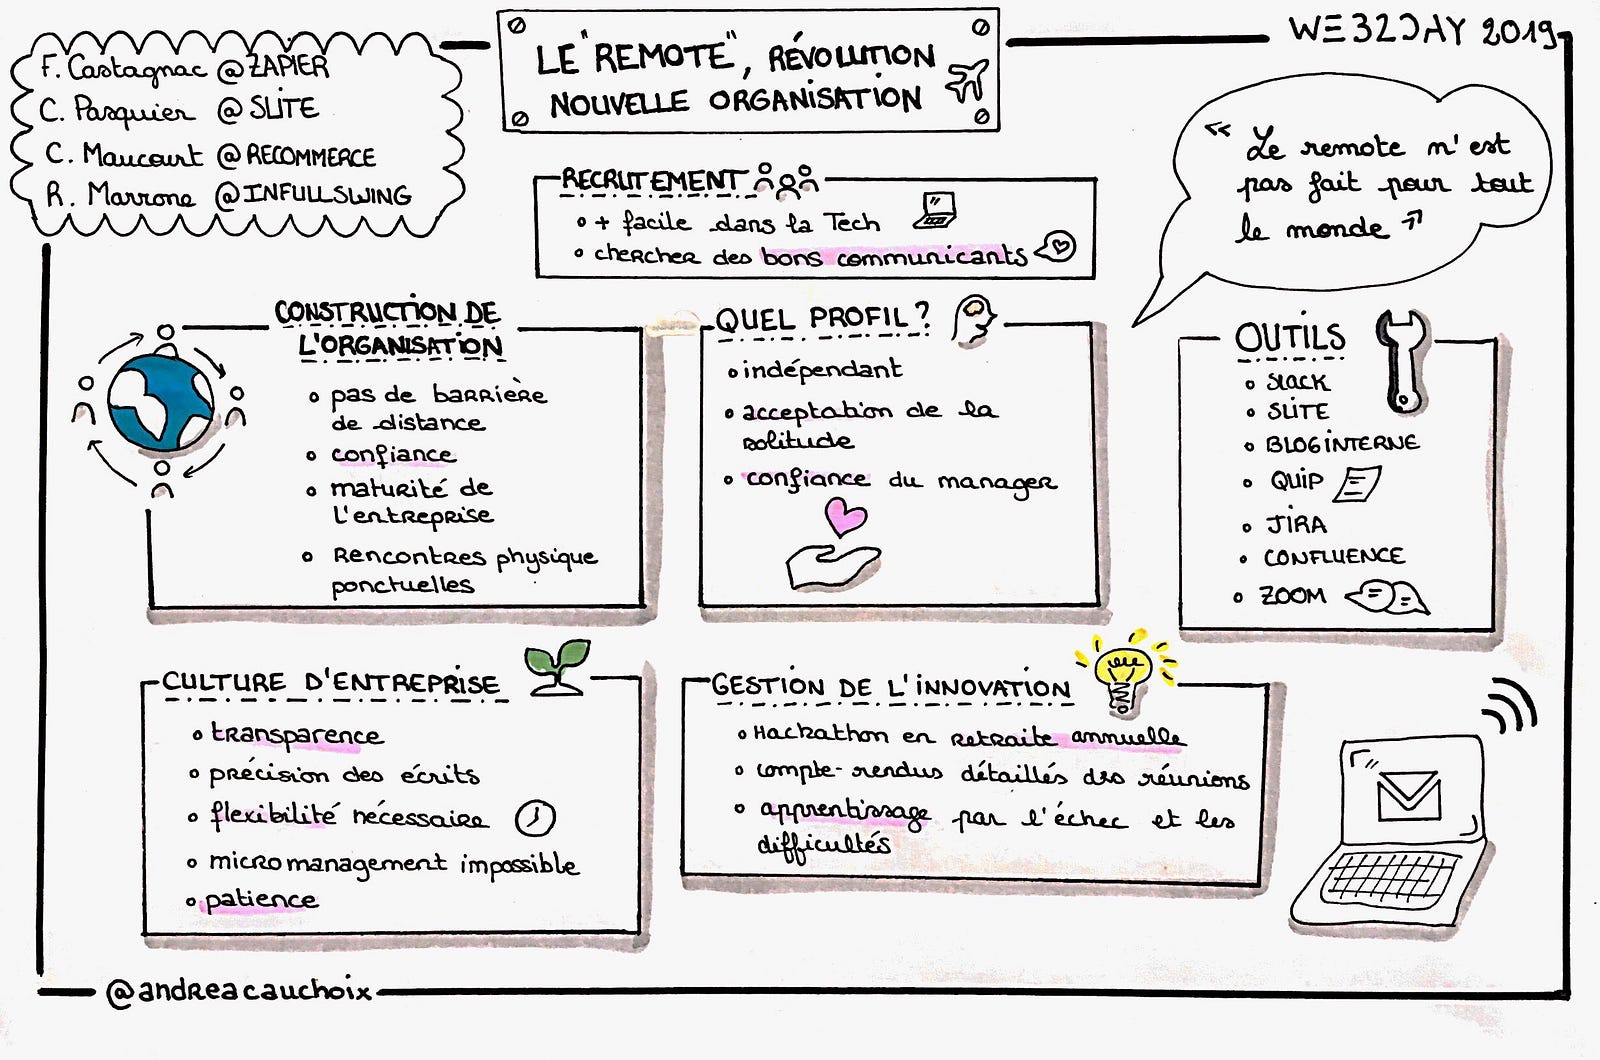 F. Castagnac @ZAPIER
C. Pasquier @SLITE
C. Maucourt @RECOMMERCE
R. Marrone @INFULLSWING
LE "REMOTE", RÉVOLUTION
NOUVELLE ORGANISATION
WEB2DAY 2019
« Le remote n'est
pas fait pour tout
le monde »
RECRUTEMENT
+ facile dans la Tech
chercher des bons communicants
CONSTRUCTION DE
L'ORGANISATION
pas de barrière
de distance
confiance
maturité de
l'entreprise
Rencontres physique
ponctuelles
QUEL PROFIL ?
indépendant
acceptation de la
solitude
confiance du manager
OUTILS
SLACK
SLITE
BLOG INTERNE
QUIP
JIRA
CONFLUENCE
ZOOM
CULTURE D'ENTREPRISE
transparence
précision des écrits
flexibilité nécessaire
micromanagement impossible
patience
GESTION DE L'INNOVATION
Hackathon en retraite annuelle
compte-rendus détaillés des réunions
apprentissage par l'échec et les
difficultés
@andreacauchoix